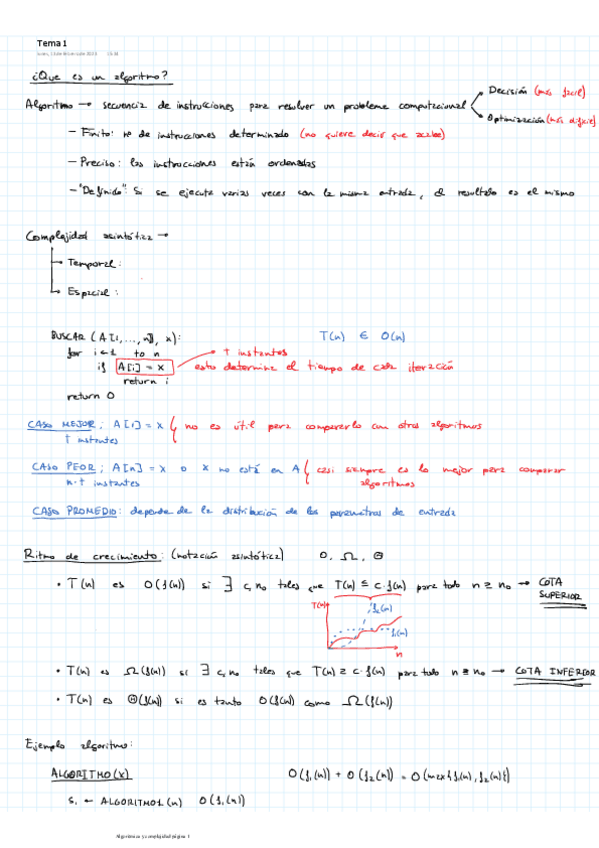 Tema 1
¿Que es un algoritmo?
Algoritmo → secuencia de instrucciones para resolver un problema computacional
Decisión (más fácil)
Optimización (más difícil)
- Finito: nº de instrucciones determinado (no quiere decir que acabe)
- Preciso: las instrucciones están ordenadas
- "Definido": Si se ejecuta varias veces con la misma entrada, el resultado es el mismo
Complejidad asintótica →
→ Temporal:
→ Espacial:
BUSCAR (A[1, ..., n], x):
T(n) ∈ O(n)
for i ← 1 to n
→ t instantes
if A[i] = x
esto determina el tiempo de cada iteración
return i
return 0
CASO MEJOR; A[1] = x { no es útil para compararlo con otros algoritmos
t instantes
CASO PEOR; A[n] = x o x no está en A { casi siempre es lo mejor para comparar
n·t instantes
algoritmos
CASO PROMEDIO: depende de la distribución de los parámetros de entrada
Ritmo de crecimiento: (notación asintótica) O, Ω, Θ
· T(n) es O(f(n)) si ∃ c, n₀ tales que T(n) ≤ c·f(n) para todo n ≥ n₀ → COTA
SUPERIOR
T(n)
f₂(n)
f₁(n)
n
· T(n) es Ω(f(n)) si ∃ c, n₀ tales que T(n) ≥ c·f(n) para todo n ≥ n₀ → COTA INFERIOR
· T(n) es Θ(f(n)) si es tanto O(f(n)) como Ω(f(n))
Ejemplo algoritmo:
ALGORITMO(X)
O(f₁(n)) + O(f₂(n)) = O(max{f₁(n), f₂(n)})
S₁ ← ALGORITMO1(n) O(f₁(n))
Algoritmos y complejidad página 1